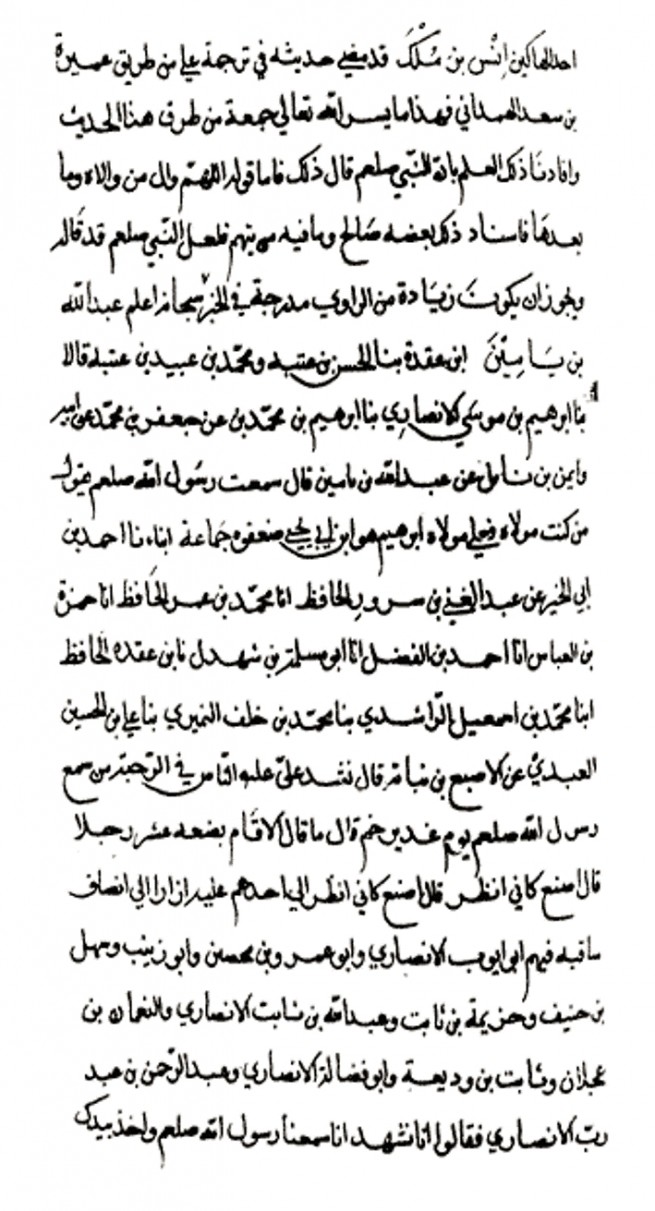 احد الهالكين انس بن ملك قد مضي حديثه في ترجمة علي من طريق عميرة
بن سعد الهمداني فهذا ما يسر الله تعالي جمعة من طرق هذا الحديث
وافادنا ذلك العلم بان النبي صلعم قال ذلك فاما قوله اللهم وال من والاه وما
بعدها فاسناد ذلك بعضه صالح وما فيه من يتهم فلعل النبي صلعم قد قاله
ويجوز ان يكون زيادة من الراوي مدرجة في الخبر اعلم عبدالله
بن يامين ابن عقدة بنا الحسن بن عتبه ومحمد بن عبيد بن عتبه قالا
بنا ابرهيم بن موسي الانصاري بنا ابرهيم بن محمد بن عن جعفر بن محمد عن ابيه
وايمن بن نابل عن عبدالله بن يامين قال سمعت رسول الله صلعم يقول
من كنت مولاه فعلي مولاه ابرهيم هو ابن ابي يحيي ضعفوه جماعة انبانا احمد بن
ابي الخير عن عبد الغني بن سرور الحافظ انا محمد بن عمر الحافظ انا حمزة
بن العباس انا احمد بن الفضل انا ابو مسلم بن شهدل نا بن عقده الحافظ
ابنا محمد بن اسمعيل الراشدي بنا محمد بن خلف النميري بنا علي بن الحسين
العبدي عن الاصبع بن نباتة قال نشد علي عليه الناس في الرحبة من سمع
رسول الله صلعم يوم غدير خم قال ما قال الا قام بضعه عشر رجلا
قال اصنع كاني انظر قال اصنع كاني انظر الي احدهم عليه ازارا الي انصاف
ساقيه فيهم ابو ايوب الانصاري وابو عمر وبن محصن وابو زينب وسهل
بن حنيف وخزيمة بن ثابت وعبدالله بن ثابت الانصاري والنعمان بن
عجلان وثابت بن وديعة وابو فضالة الانصاري وعبد الرحمن بن عبد
رب الانصاري فقالوا انا نشهد انا سمعنا رسول الله صلعم واخذ بيدك